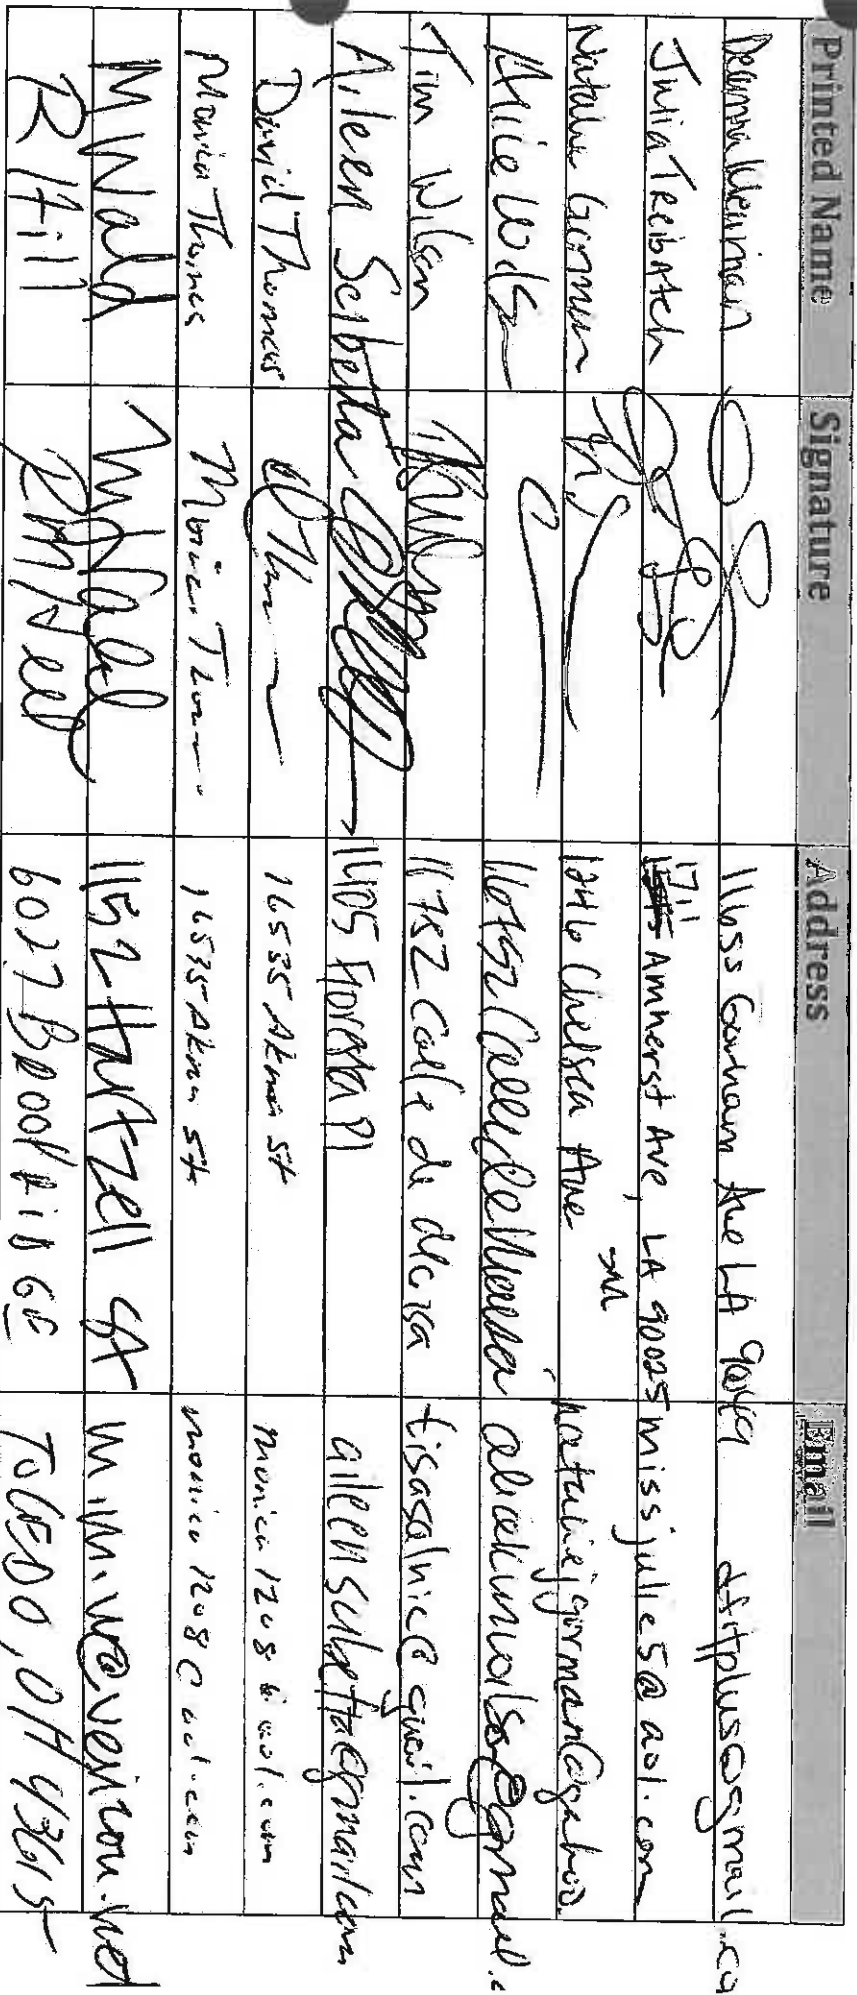 Printed Name Signature Address Email
Deanna Kleiman 11655 Gorham Ave LA 90049 dfitplus@gmail.co
Julia Treibatch 1711 Amherst Ave, LA 90025 missjulie5@aol.com
Natalie Gorman 1246 Chelsea Ave SM nataliejgorman@yahoo.
Alice Wilson 16752 Calle de
Tim Wilson 16752 Calle de tisasalnic@gmail.com
Aileen Scibetta 1405 Floresta Pl aileenscibetta@gmail.com
David Thomas 16535 Akron St monica1208@aol.com
Monica Thomas Monica Thomas 16535 Akron St monica1208@aol.com
M Wald M Wald 1152 Hartzell St m.m.w@verizon.net
R Hill R M Hill 6027 BROOK RIDGE TOLEDO, OH 43615